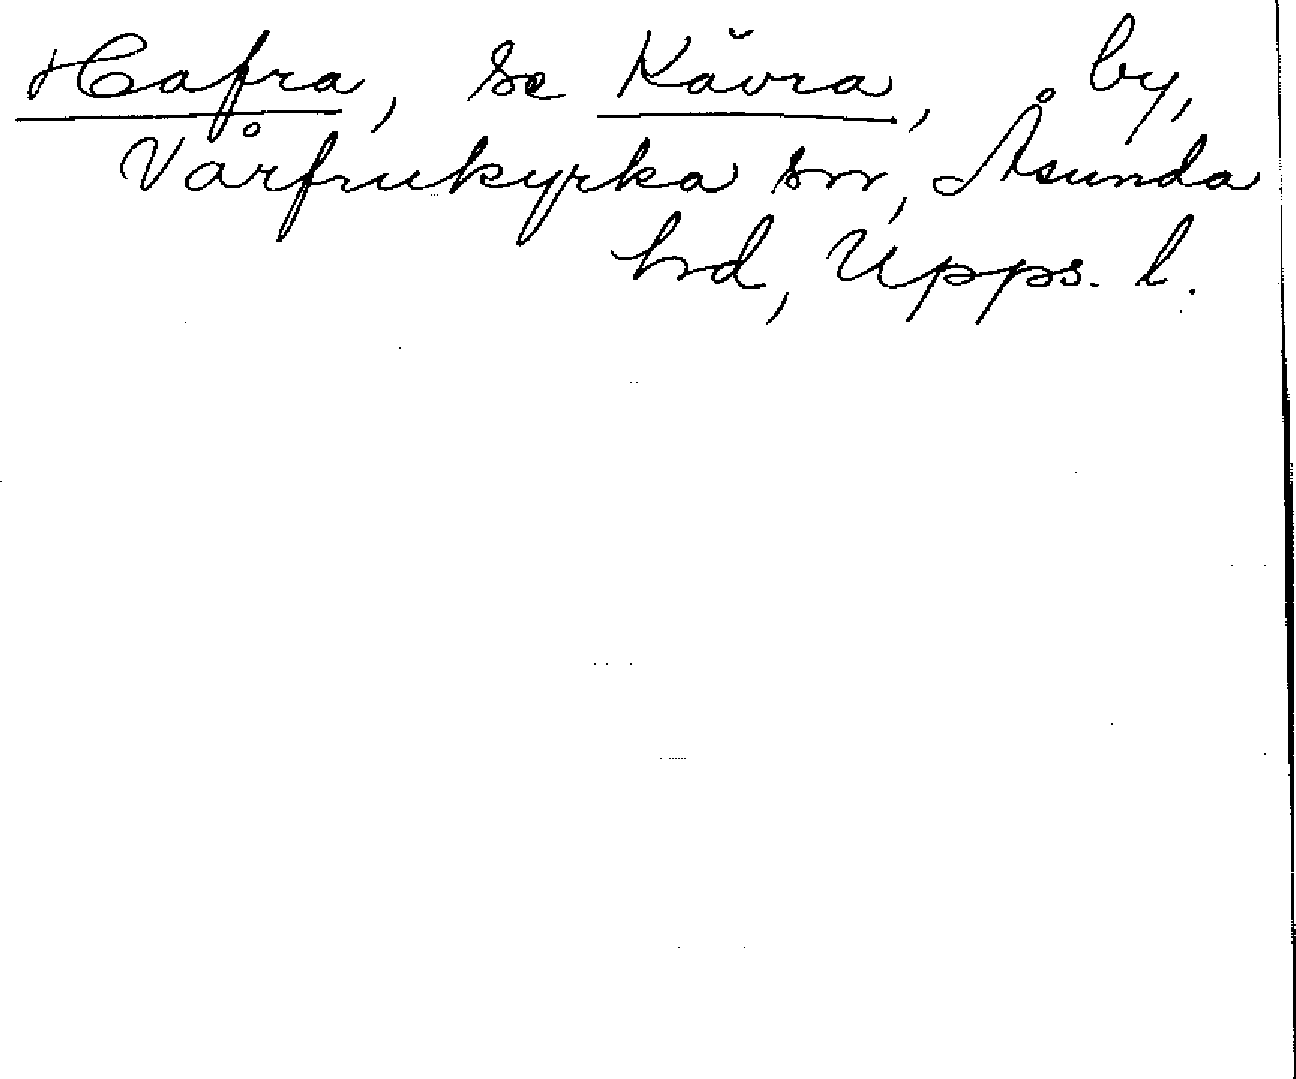 Hafra, se Kävra, by,
Vårfrukyrka sn, Åsunda
hd, Upps. l.